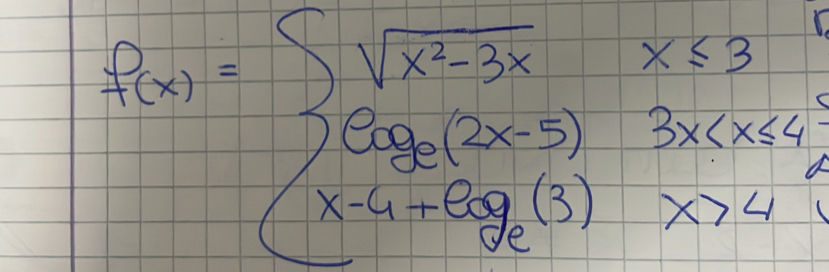 f(x) = { √(x²-3x) x ≤ 3
loge(2x-5) 3x<x≤4
x-4+loge(3) x>4